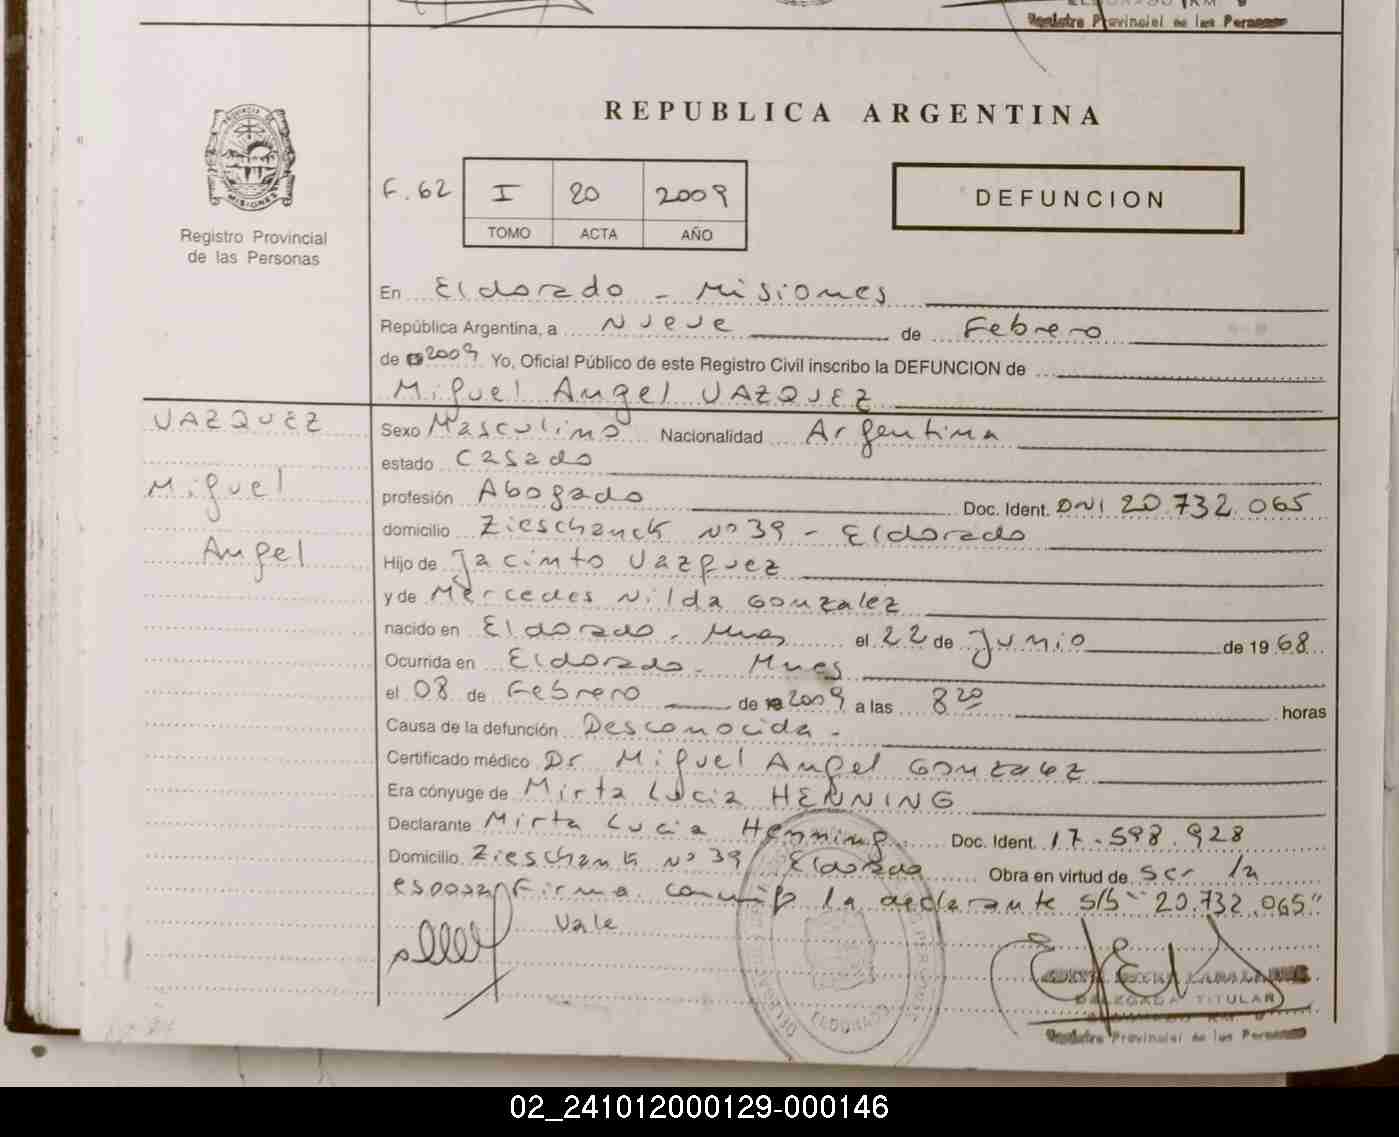 Registro Provincial de las Personas
PROVINCIA DE
MISIONES
Registro Provincial
de las Personas
REPUBLICA ARGENTINA
F. 62 I 20 2009
TOMO ACTA AÑO
DEFUNCION
En Eldorado - Misiones
República Argentina, a Nueve de Febrero
de 2009 Yo, Oficial Público de este Registro Civil inscribo la DEFUNCION de
Miguel Angel VAZQUEZ
VAZQUEZ
Miguel
Angel
Sexo Masculino Nacionalidad Argentina
estado Casado
profesión Abogado Doc. Ident. DNI 20.732.065
domicilio Zieschanck Nº 39 - Eldorado
Hijo de Jacinto Vazquez
y de Mercedes Nilda Gonzalez
nacido en Eldorado. Mnes el 22 de Junio de 1968
Ocurrida en Eldorado. Mnes
el 08 de Febrero de 2009 a las 8 20 horas
Causa de la defunción Desconocida.
Certificado médico Dr Miguel Angel Gonzalez
Era cónyuge de Mirta Lucia HENNING
Declarante Mirta Lucia Henning Doc. Ident. 17.598.928
Domicilio Zieschank Nº 39 Eldorado Obra en virtud de ser la
esposa, Firma conmigo la declarante s/b "20.732.065"
Vale
ELDORADO
DELEGADA TITULAR
Registro Provincial de las Personas
02_241012000129-000146